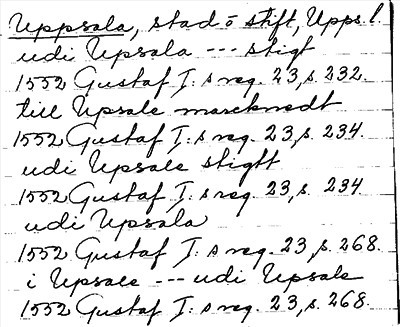 Uppsala, stad o stift, Upps. l.
udi Upsala --- stigt
1552 Gustaf I: s reg. 23, s. 232.
till Upsale marcknedt
1552 Gustaf I: s reg. 23, s. 234.
udi Upsale stigtt
1552 Gustaf I: s reg. 23, s. 234
udi Upsala
1552 Gustaf I: s reg. 23, s. 268.
i Upsale --- udi Upsale
1552 Gustaf I: s reg. 23, s. 268.